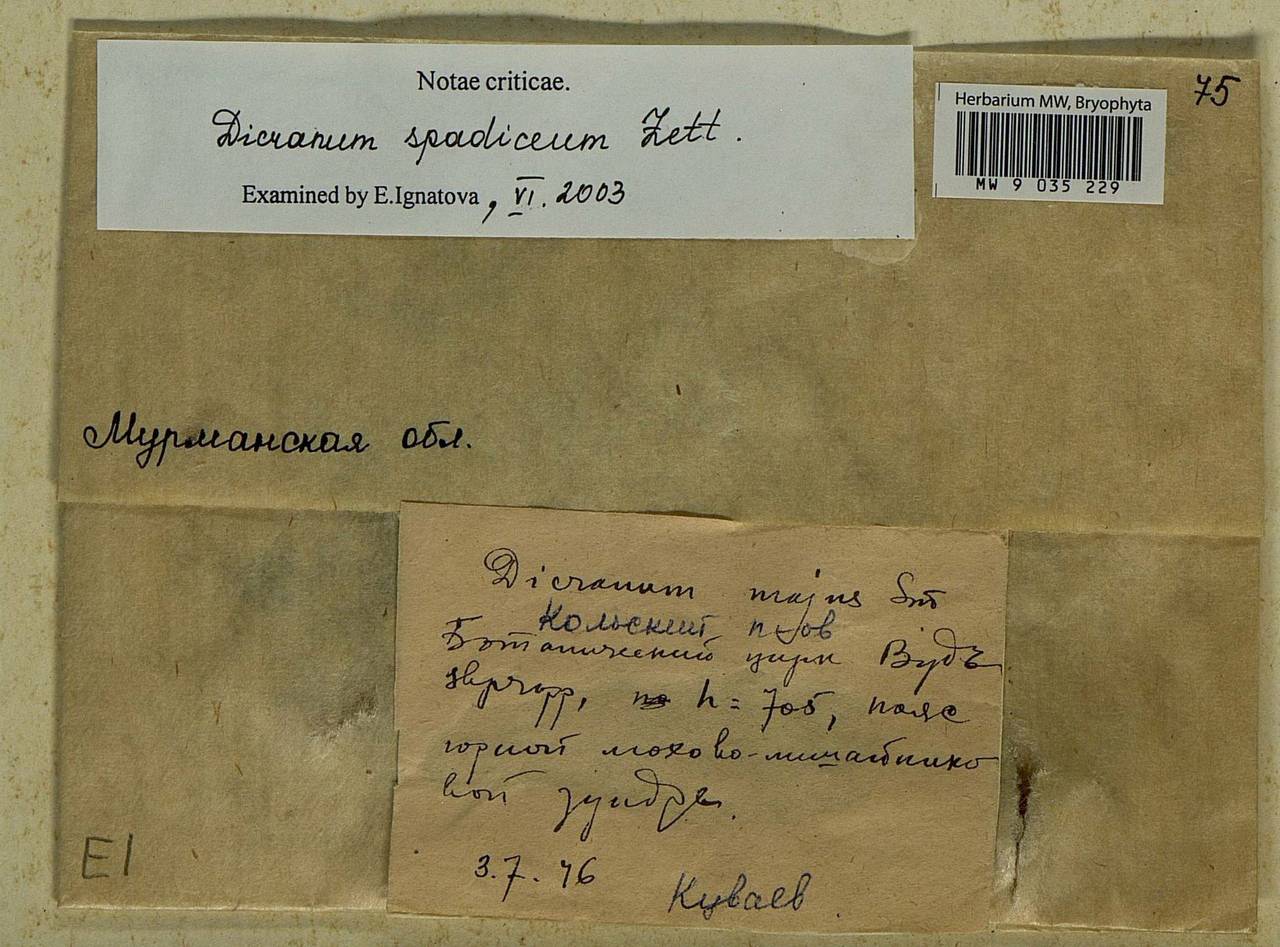 Notae criticae.
Dicranum spadiceum Zett.
Examined by E.Ignatova, VI. 2003
Herbarium MW, Bryophyta
MW 9 035 229
75
Мурманская обл.
Dicranum majus Sm
Кольский п-ов
Ботанический цирк Вудъ
h = 705, пояс
горной мохово-лишайнико
вой тундры.
3.7.46
Куваев.
E1